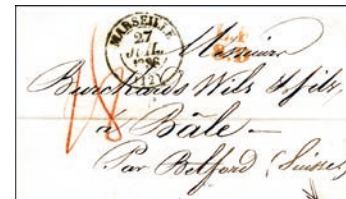 MARSEILLE
27
JUIL.
1836
(12)
Monsieur
Burckards Wils & fils
à Bâle
Par Belford (Suisse)